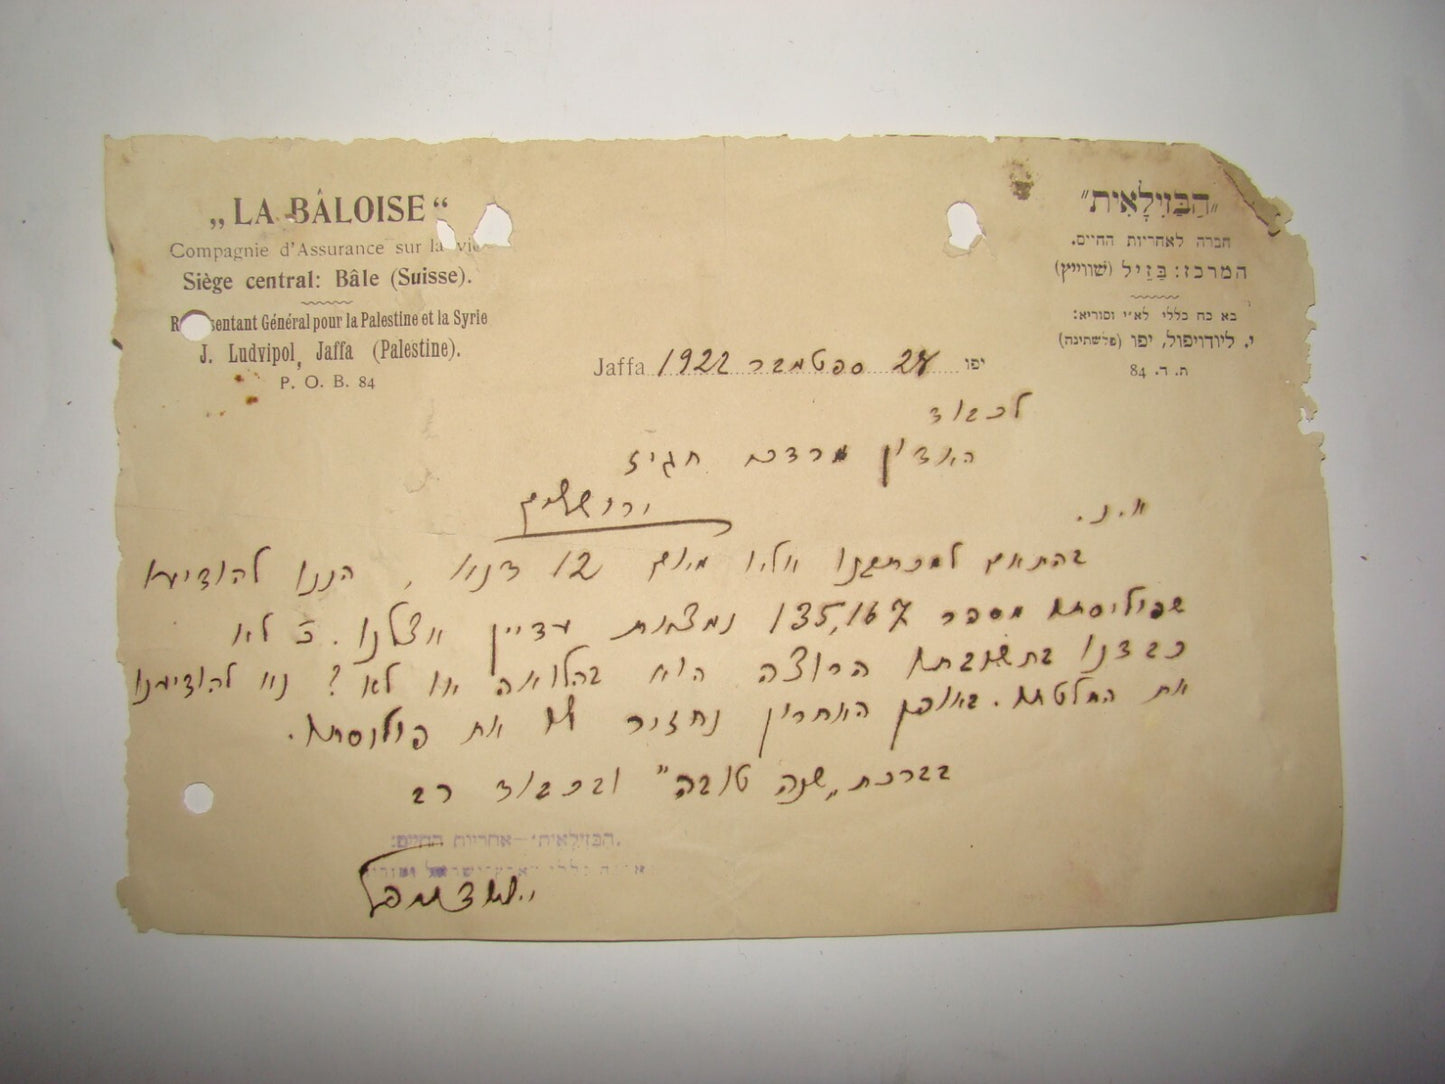 „LA BÂLOISE“
Compagnie d'Assurance sur la vie
Siège central: Bâle (Suisse).
Général pour la Palestine et la Syrie
J. Ludvipol, Jaffa (Palestine).
P. O. B. 84
"הַבַּזִילָאִית"
חברה לאחריות החיים.
המרכז: בַּזֵיל (שווייץ)
בא כח כללי לא״י וסוריא:
י. לידויפול, יפו (פלשתינה)
ת. ד. 84
Jaffa 1922 ספטמבר 28 יפו
לכבוד
האדון מרדכי חגיז
ירושלים
א.נ.
בהתאם למכתבנו אליו מיום 12 דנא, הננו להודיעו
שפוליסתו מספר 135,167 נמצאת עדיין אצלנו. לא
כבדנו בתשובתו הרוצה הוא בהלואה או לא? נא להודיענו
את החלטתו. באופן האחרון נחזיר לו את פוליסתו.
בברכת „שנה טובה" ובכבוד רב
הבזילאית"—אחריות החיים: